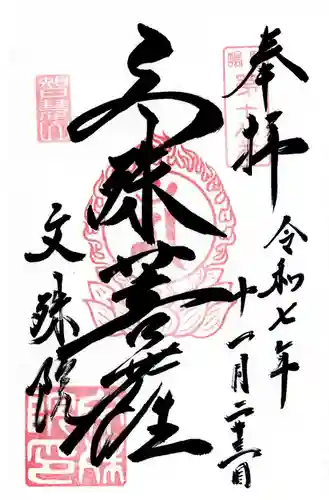 奉拝
令和七年
十一月二十三日
文殊菩薩
文殊院
智慧